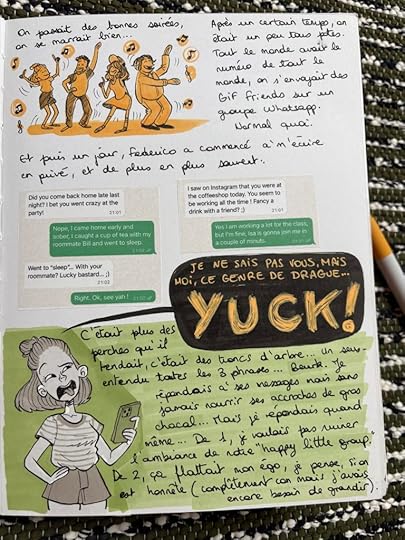 On passait des bonnes soirées,
on se marrait bien...
Après un certain temps, on
était un peu tous potes.
Tout le monde avait le
numéro de tout le
monde, on s'envoyait des
GiF Friends sur un
groupe Whatsapp.
Normal quoi.
Et puis un jour, Federico a commencé à m'écrire
en privé, et de plus en plus souvent.
Did you come back home late last
night? I bet you went crazy at the
party!
21:01
Nope, I came home early and
sober, I caught a cup of tea with my
roommate Bill and went to sleep.
Went to "sleep"... With your
roommate? Lucky bastard... ;)
21:02
Right. Ok, see yah !
I saw on Instagram that you were at
the coffeeshop today. You seem to
be working all the time ! Fancy a
drink with a friend? ;)
21:01
Yes I am working a lot for the class,
but I'm fine, Isa is gonna join me in
a couple of minuts.
JE NE SAIS PAS VOUS, MAIS
MOi, CE GENRE DE DRAGUE...
YUCK!
C'était plus des
perches qu'il
tendait, c'était des troncs d'arbre... Un sous-
entendu toutes les 3 phrases... Beurk. Je
répondais à ses messages mais sans
jamais nourrir ses accroches de gros
chacal... Mais je répondais quand
même... De 1, je voulais pas ruiner
l'ambiance de notre "happy little group."
De 2, ça flattait mon égo, je pense, si on
est honnête (complètement con mais j'avais
encore besoin de grandir).